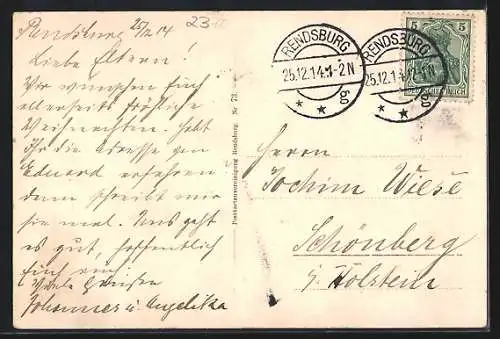 Rendsburg 25/12 14
Liebe Eltern!
Wir wünschen Euch
allerseits fröhliche
Weihnachten. Habt
Ihr die Adresse von
Eduard erfahren
dann schreibt mir
sie mal. Uns geht
es gut, hoffentlich
Euch auch
Viele Grüsse
Johannes u. Angelika
23
Postkartenvereinigung Rendsburg. Nr 73.
RENDSBURG
25.12.14.1-2N
* * g
RENDSBURG
25.12.14.1-2N
* * g
5 5
DEUTSCHES REICH
Herrn
Jochim Wiese
Schönberg
i/ Holstein